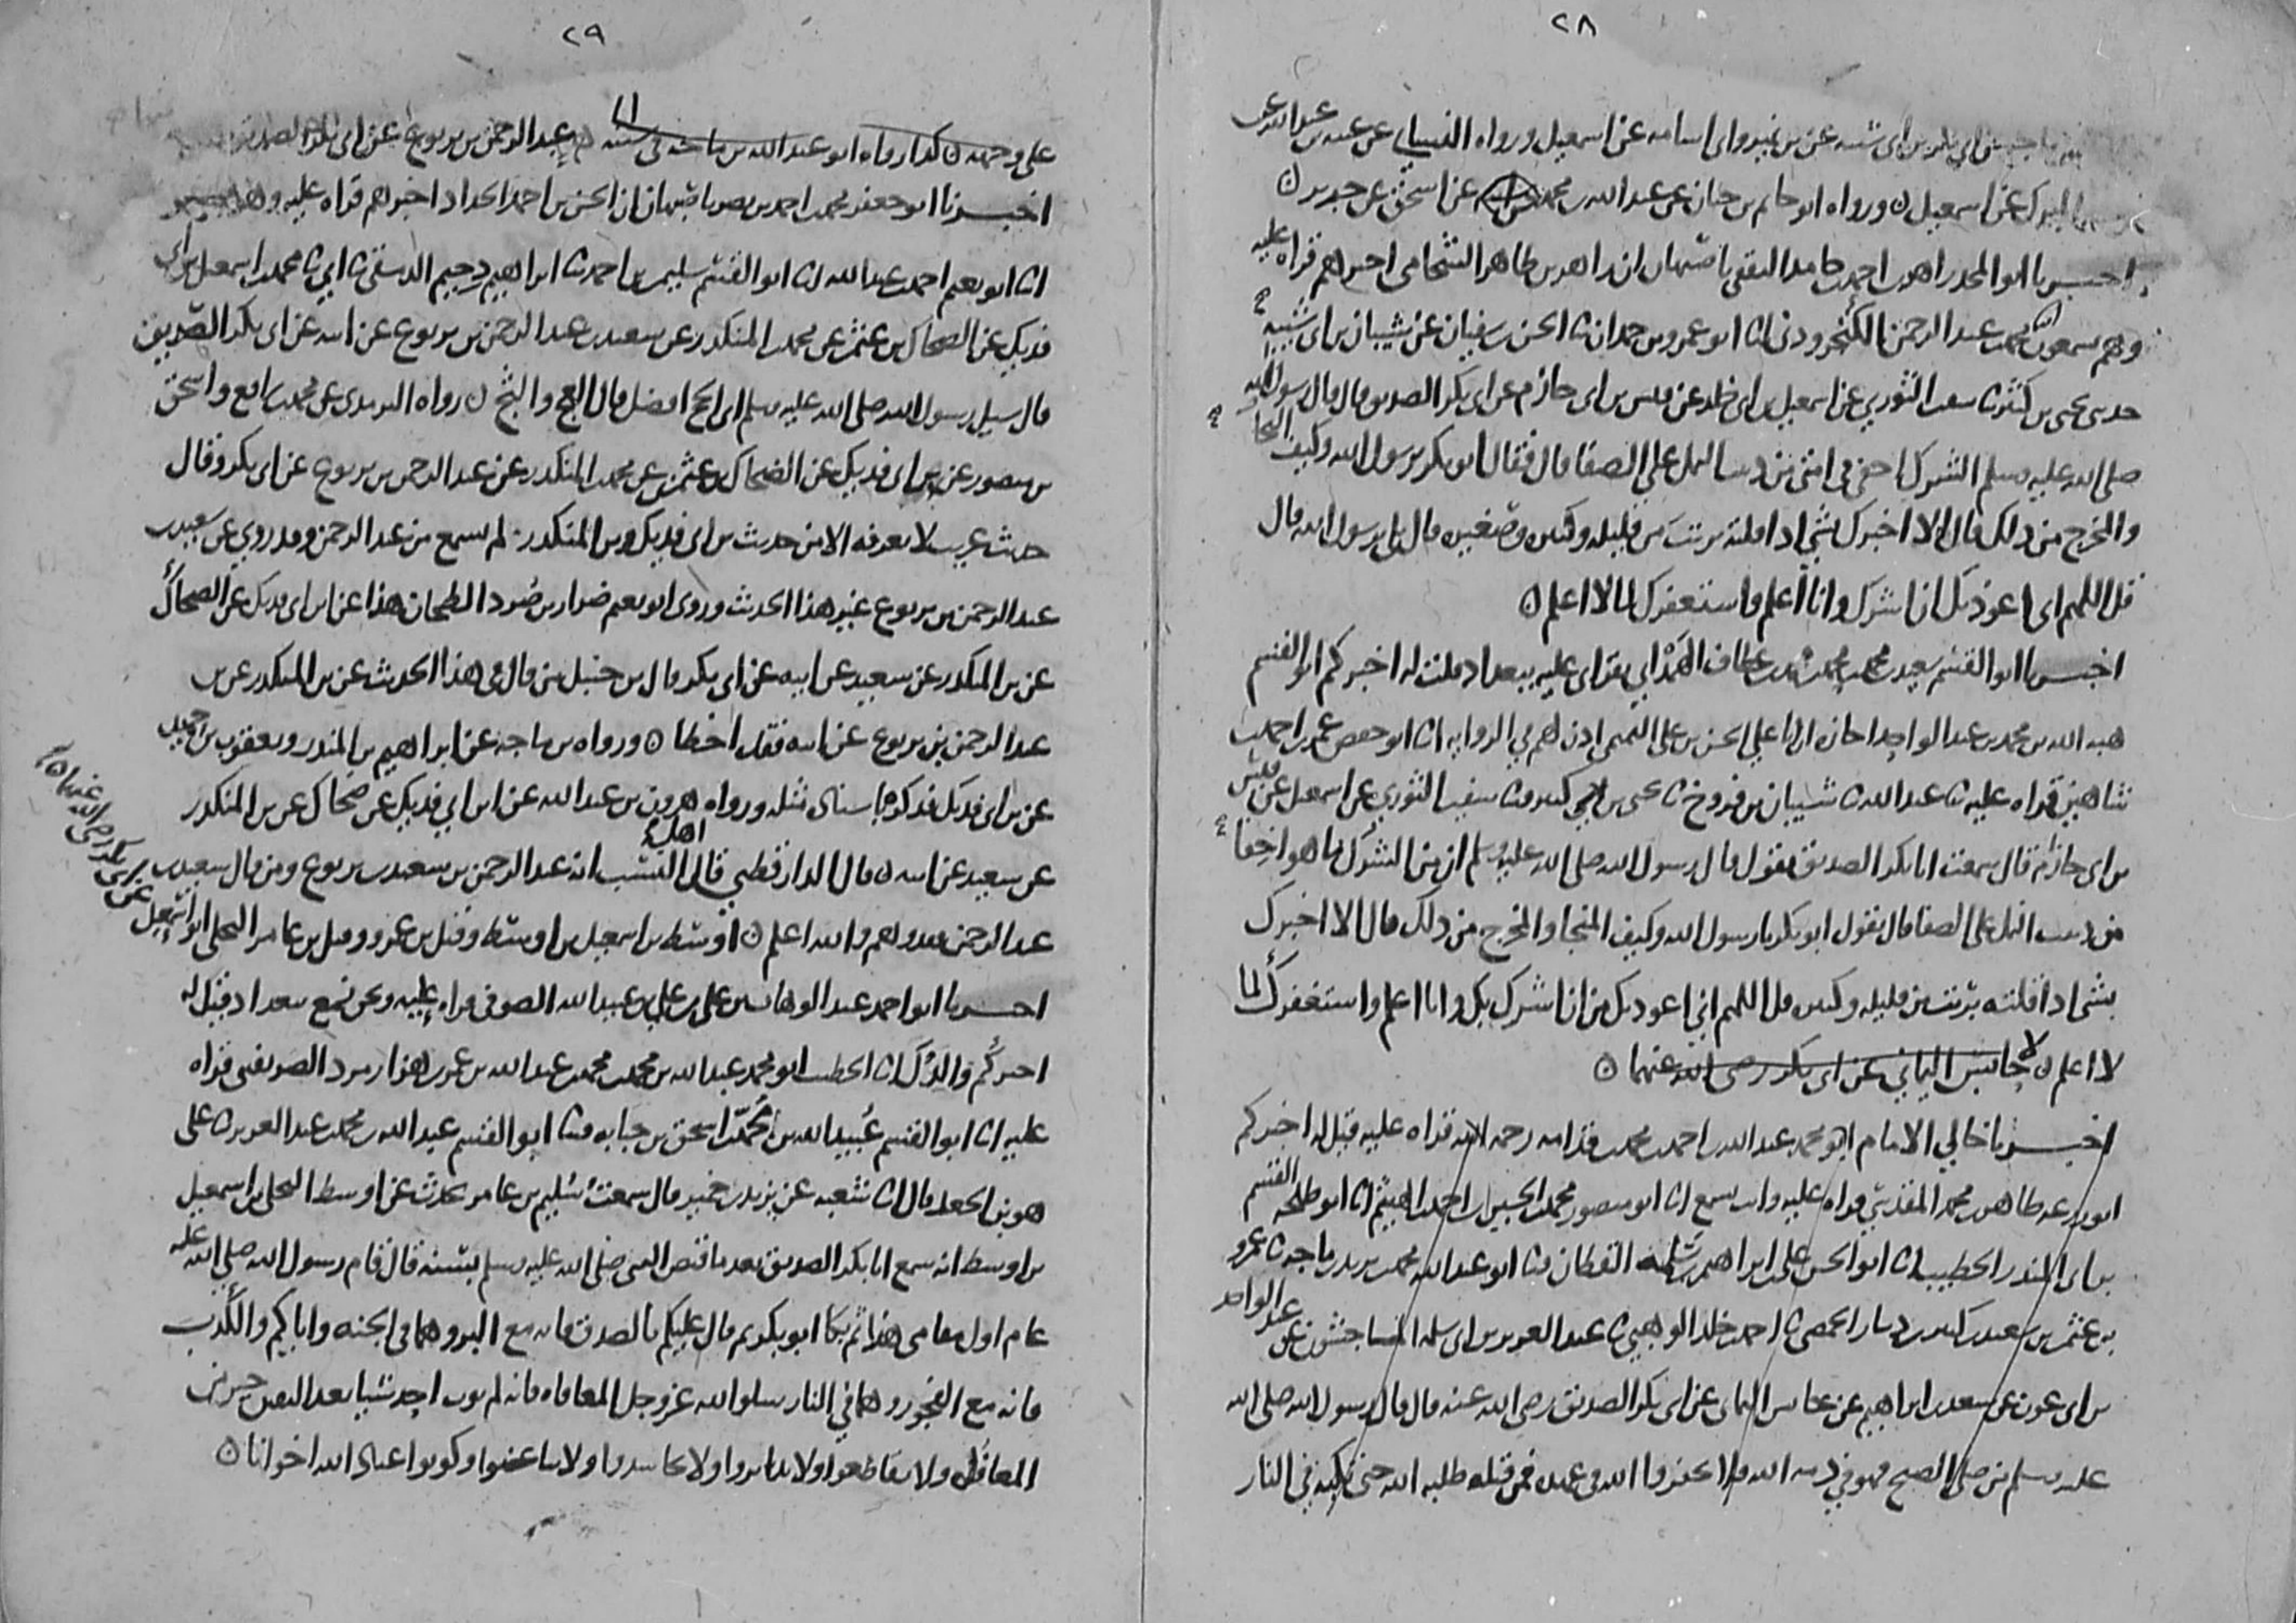 ٢٨
عن بن نمير وابي اسامه عن اسمعيل ورواه النسائي عن عبده بن عبد الله عن
عن اسمعيل ن ورواه ابو حاتم بن حبان عن عبد الله بن محمد عن اسحق عن جرير ن
اخبرنا ابو المجد زاهر بن احمد بن حامد الثقفي باصبهان ان زاهر بن طاهر الشحامي اخبرهم قراه عليه
وهم يسمعون انا محمد بن عبد الرحمن الكنجروذي انا ابو عمرو بن حمدان انا الحسن بن سفيان عن شيبان بن ابي شيبه
حدثني يحيى بن كثير ثنا سفين الثوري عن اسمعيل بن ابي خلد عن قيس بن ابي حازم عن ابي بكر الصديق قال قال رسول الله
صلى الله عليه وسلم الشرك اخفى في امتي من دبيب النمل على الصفا قال فقال ابو بكر يرسول الله وكيف النجا
والمخرج من ذلك قال الا اخبرك بشي اذا قلته برئت من قليله وكثيره وصغيره قال بلى يرسول الله قال
قل اللهم اني اعوذ بك ان اشرك وانا اعلم واستغفرك لما لا اعلم ن
اخبرنا ابو القسم سعيد بن محمد بن محمد بن محمد بن عطاف الهمداني بقراتي عليه ببغداد قلت له اخبركم ابو القسم
هبه الله بن محمد بن عبد الواحد اجازه ان ابا علي الحسن بن علي التميمي اذن لهم في الروايه انا ابو حفص عمر بن احمد بن
شاهين قراه عليه ثنا عبد الله ثنا شيبان بن فروخ ثنا يحيى بن كثير ثنا سفين الثوري عن اسمعيل عن قيس
بن ابي حازم قال سمعت ابا بكر الصديق يقول قال رسول الله صلى الله عليه وسلم ان من الشرك ما هو اخفا
من دبيب النمل على الصفا قال يقول ابو بكر يا رسول الله وكيف المنجا والمخرج من ذلك قال الا اخبرك
بشي اذا قلته برئت من قليله وكثيره قل اللهم اني اعوذ بك من ان اشرك بك وانا اعلم واستغفرك لما
لا اعلم ن حابس اليماني عن ابي بكر رضي الله عنهما ن
اخبرنا خالي الامام ابو محمد عبد الله بن احمد بن محمد بن قدامه رحمه الله قراه عليه قيل له اخبركم
ابو زرعه طاهر بن محمد المقدسي قراه عليه وانت تسمع انا ابو منصور محمد بن الحسين بن احمد بن الهيثم انا ابو طلحه القسم
بن ابي المنذر الخطيب انا ابو الحسن علي بن ابراهيم بن سلمه القطان ثنا ابو عبد الله محمد بن يزيد بن ماجه ثنا عمرو
بن عثمن بن سعيد بن كثير بن دينار الحمصي ثنا احمد بن خلد الوهبي ثنا عبد العزيز بن ابي سلمه الماجشون عن عبد الواحد
بن ابي عون عن سعد بن ابراهيم عن حابس اليماني عن ابي بكر الصديق رضي الله عنه قال قال رسول الله صلى الله
عليه وسلم من صلى الصبح فهو في ذمه الله فلا تخفروا الله في عهده فمن قتله طلبه الله حتى يكبه في النار
٢٩
على وجهه ن كذا رواه ابو عبد الله بن ماجه في سننه ن عبد الرحمن بن يربوع عن ابي بكر الصديق
اخبرنا ابو جعفر محمد بن احمد بن نصر باصبهان ان الحسن بن احمد الحداد اخبرهم قراه عليه وهو حاضر
انا ابو نعيم احمد بن عبد الله انا ابو القسم سليمن بن احمد ثنا ابراهيم بن دحيم الدمشقي ثنا ابي ثنا محمد بن اسمعيل بن ابي
فديك عن الضحاك بن عثمن عن محمد بن المنكدر عن سعيد بن عبد الرحمن بن يربوع عن ابيه عن ابي بكر الصديق
قال سيل رسول الله صلى الله عليه وسلم اي الحج افضل قال العج والثج ن رواه الترمذي عن محمد بن رافع واسحق
بن منصور عن بن ابي فديك عن الضحاك بن عثمن عن محمد بن المنكدر عن عبد الرحمن بن يربوع عن ابي بكر وقال
حديث غريب لا نعرفه الا من حديث بن ابي فديك وبن المنكدر لم يسمع من عبد الرحمن وقد روي عن سعيد بن
عبد الرحمن بن يربوع غير هذا الحديث وروى ابو نعيم ضرار بن صرد الطحان هذا عن ابن ابي فديك عن الضحاك
عن بن المنكدر عن سعيد عن ابيه عن ابي بكر قال بن حنبل من قال في هذا الحديث عن بن المنكدر عن بن
عبد الرحمن بن يربوع عن ابيه فقد اخطا ن ورواه بن ماجه عن ابراهيم بن المنذر ويعقوب بن حميد
عن بن ابي فديك فذكره باسناد مثله ورواه هرون بن عبد الله عن ابن ابي فديك عن ضحاك عن بن المنكدر
عن سعيد عن ابيه ن قال الدارقطني قال اهل النسب انه عبد الرحمن بن سعيد بن يربوع ومن قال سعيد بن
عبد الرحمن فقد وهم والله اعلم ن اوسط بن اسمعيل بن اوسط وقيل بن عمرو وقيل بن عامر البجلي ابو اسمعيل
عن ابي بكر رضي الله عنهما ن
اخبرنا ابو احمد عبد الوهاب بن علي بن علي بن عبيد الله الصوفي قراه عليه ونحن نسمع ببغداد قيل له
اخبركم والدك انا الخطيب ابو محمد عبد الله بن محمد بن عبد الله بن عمر بن هزارمرد الصريفيني قراه
عليه انا ابو القسم عبيد الله بن محمد بن اسحق بن حبابه ثنا ابو القسم عبد الله بن محمد بن عبد العزيز ثنا علي
هو بن الجعد قال انا شعبه عن يزيد بن خمير قال سمعت سليم بن عامر يحدث عن اوسط البجلي بن اسمعيل
بن اوسط انه سمع ابا بكر الصديق بعد ما قبض النبي صلى الله عليه وسلم بسنه قال قام رسول الله صلى الله عليه
عام اول مقامي هذا ثم بكا ابو بكر ثم قال عليكم بالصدق فانه مع البر وهما في الجنه واياكم والكذب
فانه مع الفجور وهما في النار سلوا الله عز وجل المعافاه فانه لم يوت احد شيا بعد اليقين خير من
المعافاه ولا تقاطعوا ولا تدابروا ولا تحاسدوا ولا تباغضوا وكونوا عباد الله اخوانا ن